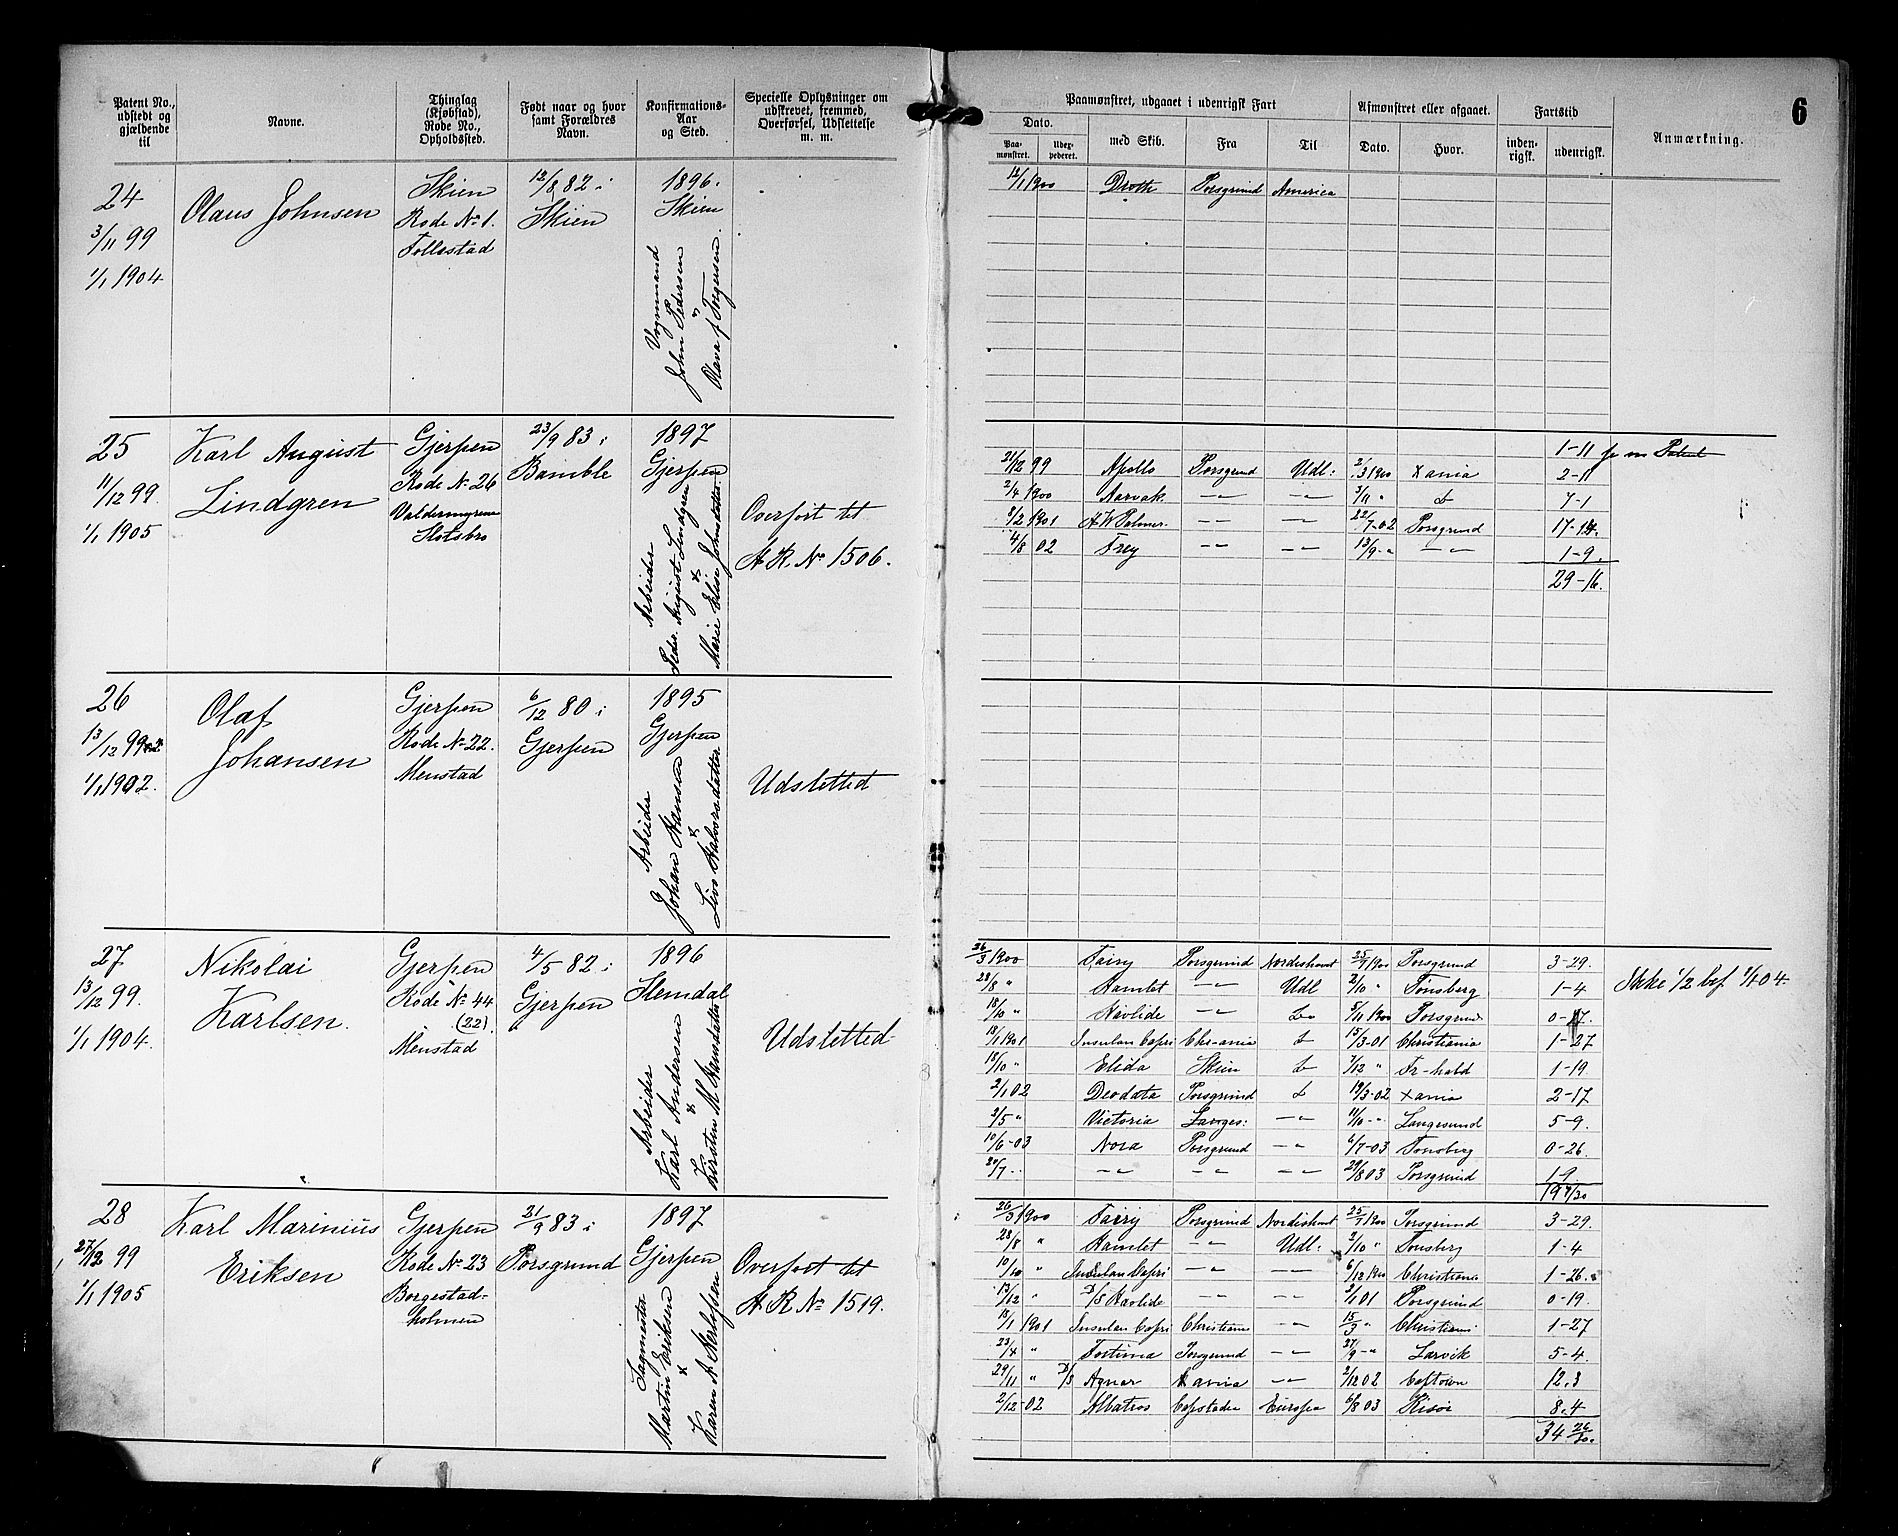 Patent No., udstedt og gjældende til
Navne.
Thinglag (Kjøbstad), Rode No., Opholdssted.
Født naar og hvor samt Forældres Navn.
Konfirmations-Aar og Sted.
Specielle Oplysninger om udskrevet, fremmed, Overførsel, Udslettelse m. m.
Paamønstret, udgaaet i udenrigsk Fart
Afmønstret eller afgaaet.
Fartstid
Anmærkning.
6
Dato.
Paa-mønstret.
Udex-pederet.
med Skib.
Fra
Til
Dato.
Hvor.
inden-rigsk.
udenrigsk.
24
3/11 99
1/1 1904
Olaus Johnsen
Skien
Rode No 1.
Follestad
12/8 82 i
Skien
1896.
Skien
Vognmand
John Pedersen
"
Olava f. Torgersen.
12/1 1900 Droth Porsgrund America
25
11/12 99.
1/1 1905
Karl August
Lindgren
Gjerpen
Rode No 26
Valdermyrene
Slotsbro
23/9 83 i
Bamble
1897
Gjerpen
Arbeider
Peder August Lindgren
&
Marie Elise Johnsdatter
Overført til
A. R. No 1506.
1-11
21/12 99 Apollo Porsgrund Udl: 2/3 1900 Xania 2-11
2/4 1900 Aarvak -"- -"- 3/11 " d 7-1
8/2 1901 A W Palmer. -"- -"- 22/7-02 Porsgrund 17-14.
4/8 02 Frey -"- -"- 13/9-" -"- 1-9.
29-16.
26
13/12 99
1/1 1902.
Olaf
Johansen
Gjerpen
Rode No 22.
Menstad
6/12 80 i
Gjerpen
1895
Gjerpen
Arbeider
Johan Hansen
&
Live Halvorsdatter
Udsletted
27
13/12 99.
1/1 1904.
Nikolai
Karlsen.
Gjerpen
Rode No 44
(22).
Menstad
4/5 82 i
Gjerpen
1896
Slemdal
Arbeider
Karl Andersen
&
Kirsten M. Hansdatter
Udsletted
26/3 1900 Fairy Porsgrund Nordishavet 25/7 1900 Porsgrund 3-29.
28/8 " Hamlet -"- Udl 2/10 " Tønsberg 1-4
Ikke 1/2 bef 1/1 04.
18/10 " Havlide -"- Do 5/11 1900 Porsgrund 0-17.
18/1 1901 Insulan Capri Chr-ania d 15/3-01 Christiania 1-27
18/10 " Elida Skien d 7/12 " Fr-hald 1-19.
2/1 02 Deodata Porsgrund d 19/3-02 Xania 2-17
2/5 " Victoria Langes: -"- 11/10-" Langesund 5-9.
10/6-03 Nora Porsgrund -"- 6/7-03 Tønsberg 0-26.
20/7-. -"- -"- -"- 29/8 03 Porsgrund 1-9
19 7/30
28
27/12 99
1/1 1905
Karl Marinius
Eriksen
Gjerpen
Rode No 23
Borgestad-
holmen
21/9 83 i
Porsgrund
1897
Gjerpen
Sagmester
Martin Eriksen
&
Karen A.
Overført til
A. R. No 1519.
26/3 1900 Fairy Porsgrund Nordishavet 25/7 1900 Porsgrund 3-29.
28/8 " Hamlet -"- Udl: 2/10 " Tønsberg 1-4
10/10 " Insulan Capri -"- -"- 6/12 1900 Christiania 1-26.
13/12 " D/S Havlide -"- -"- 2/1 01 Porsgrund 0-19.
13/1 1901 Insulan Capri Christiania -"- 15/3 " Christiania 1-27
23/4 " Fortuna Porsgrund -"- 27/9-" Larvik 5-4.
29/11 " D/S Agnar Xania -"- 2/12 02 Captown 12.3
2/12-02 Albatros Capstaden Europa 6/8 03 Risør 8.4
34 26/30.